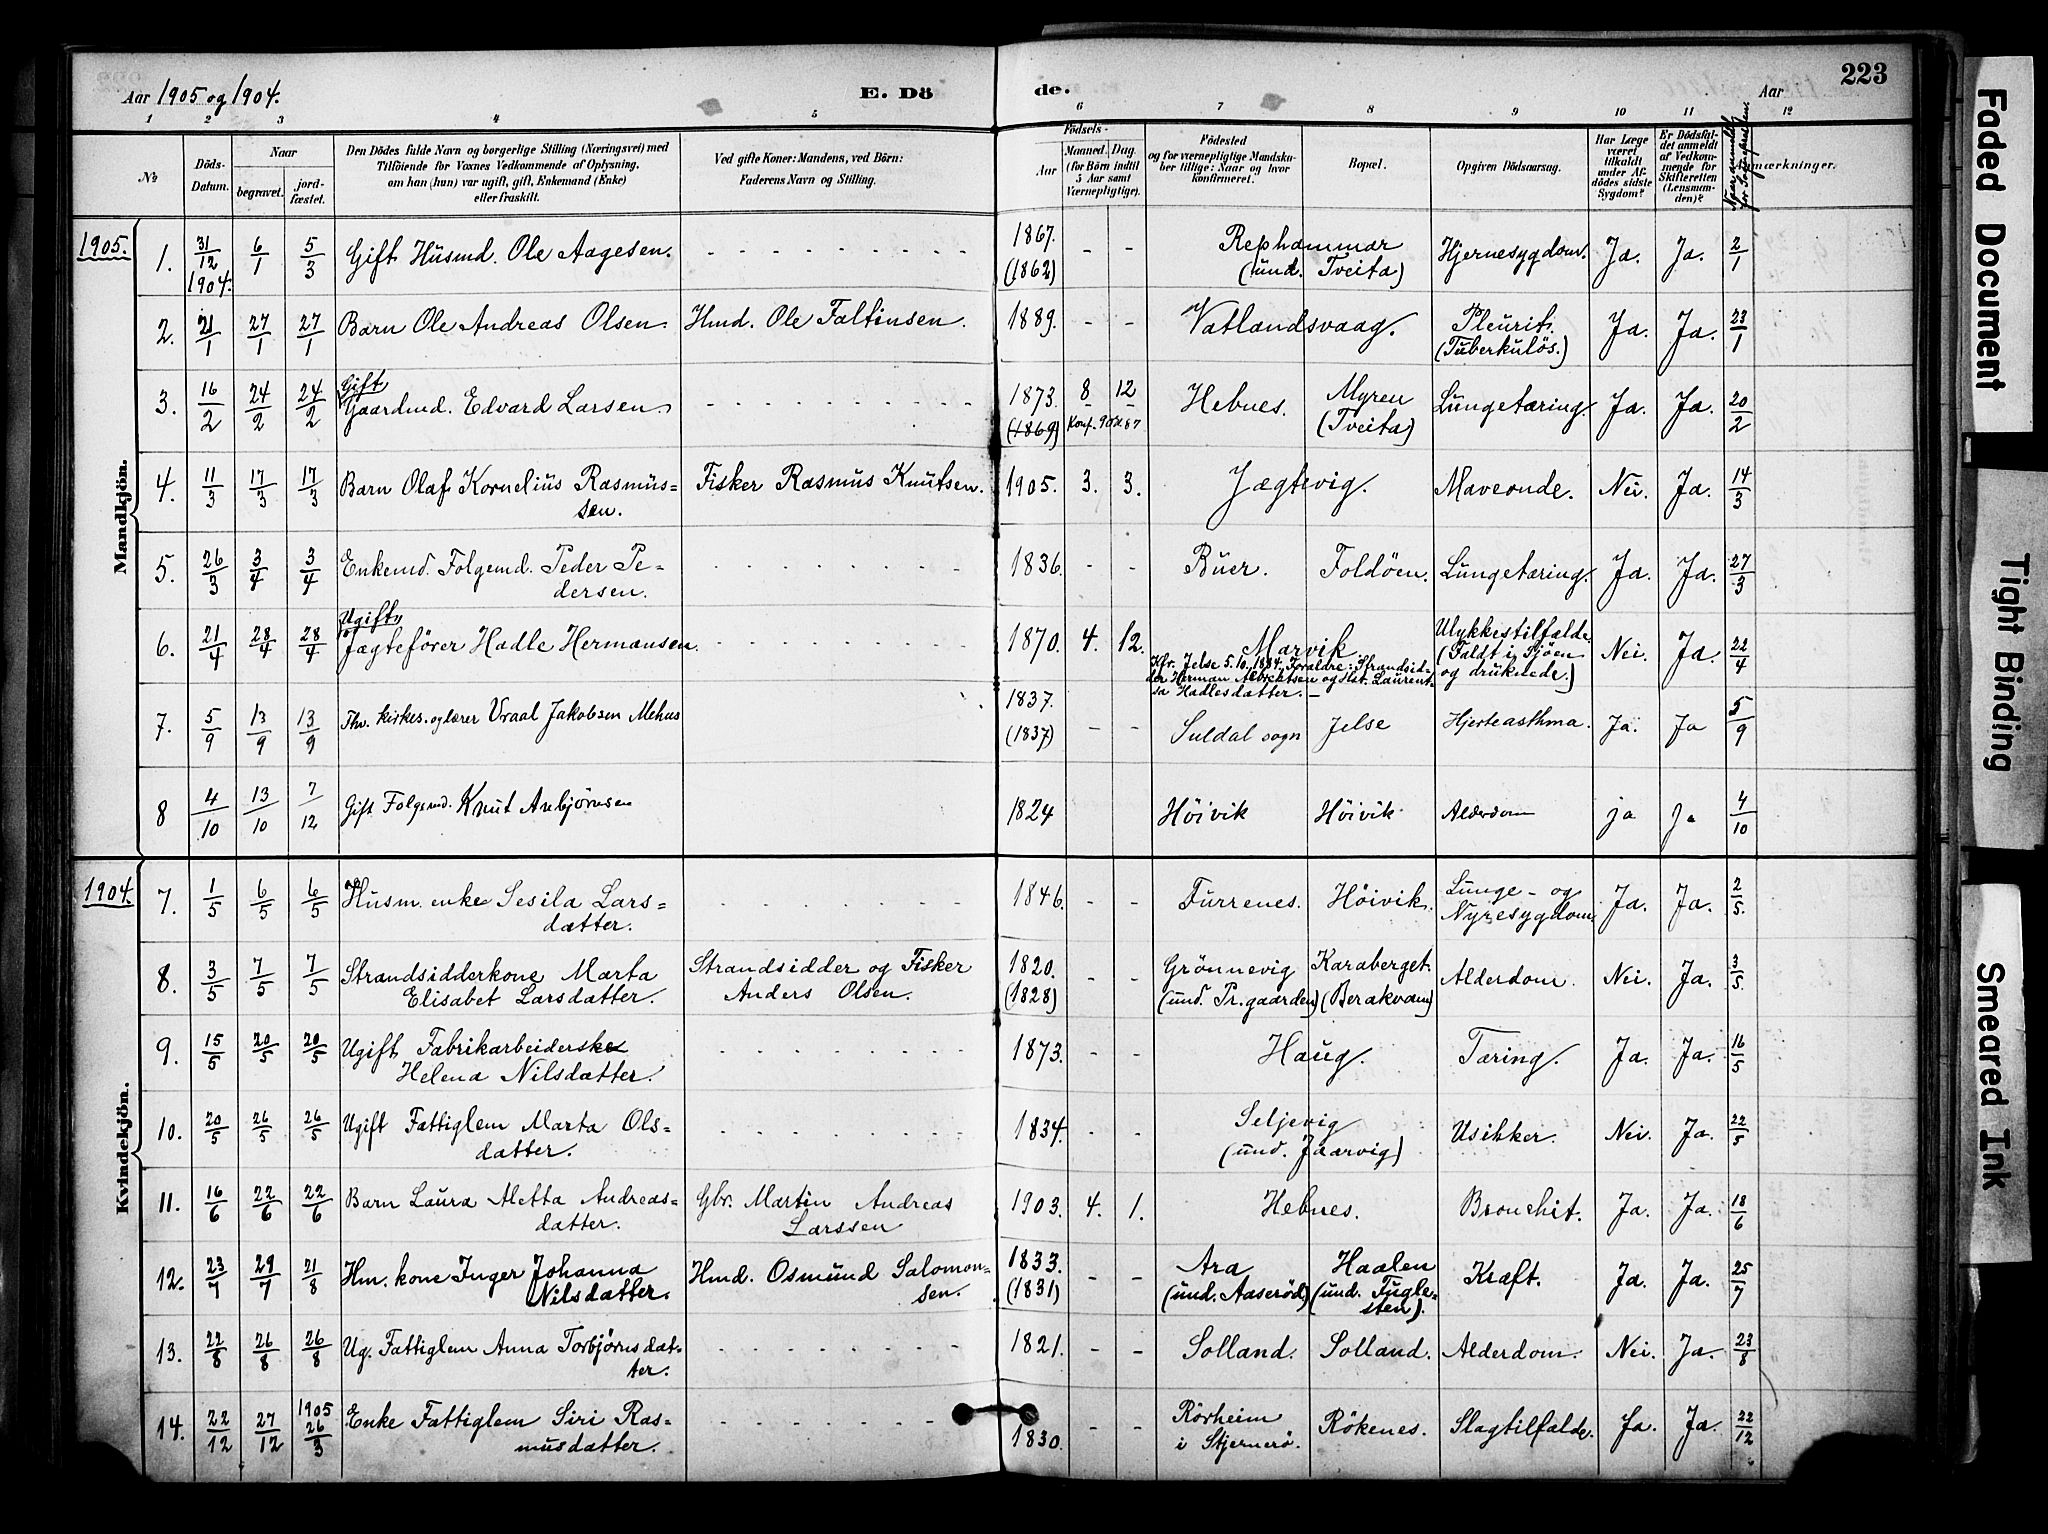 223
Aar 1905 og 1904. E. Dö de. Aar
1 2 3 4 5 6 7 8 9 10 11 12
№
Döds-Datum.
Naar
begravet. jord-fæstet.
Den Dödes fulde Navn og borgerlige Stilling (Næringsvei) med
Tilföiende for Voxnes Vedkommende af Oplysning,
om han (hun) var ugift, gift, Enkemand (Enke)
eller fraskilt.
Ved gifte Koner: Mandens, ved Börn:
Faderens Navn og Stilling.
Födsels-
Aar
Maaned. Dag.
(for Börn indtil
5 Aar samt
Værnepligtige).
Födested
og for værnepligtige Mandska-
ber tillige: Naar og hvor
konfirmeret.
Bopæl.
Opgiven Dödsaarsag.
Har Læge
været
tilkaldt
under Af-
dödes sidste
Sygdom?
Er Dödsfal-
det anmeldt
af Vedkom-
mende for
Skifteretten
(Lensman-
den)?
Anmærkninger.
1905.
Mandkjön.
1. 31/12 1904. 6/1 5/3 Gift Husmd. Ole Aagesen. 1867. (1862) - - Rephammar (und. Tveita) Hjernesygdom. Ja. Ja. 2/1
2. 21/1 27/1 27/1 Barn Ole Andreas Olsen. Hmd. Ole Faltinsen. 1889. - - Vatlandsvaag. Pleurit. (Tuberkulös.) Ja. Ja. 23/1
3. 16/2 24/2 24/2 Gift Gaardmd. Edvard Larsen. 1873. (1869) 8 12 Konf. 9 Okt 87 Hebnes. Myren (Tveita) Lungetæring. Ja. Ja. 20/2
4. 11/3 17/3 17/3 Barn Olaf Kornelius Rasmus=
sen. Fisker Rasmus Knutsen. 1905. 3. 3. Jægtevig. Maveonde. Nei. Ja. 14/3
5. 26/3 3/4 3/4 Enkemd. Folgemd. Peder Pe-
dersen. 1836. - - Buer. Foldöen. Lungetæring. Ja. Ja. 27/3
6. 21/4 28/4 28/4 Ugift Jægtefører Hadle Hermansen. 1870. 4. 12. Marvik
Kfr. Jelse 5.10.1884. Foraldre: Strandsid-
der Herman Albrechtsen og Hst. Laurent-
sa Hadlesdatter. -
Ulykkestilfælde. (Faldt i Sjöen og druknede.) Nei. Ja. 22/4
7. 5/9 13/9 13/9 Fhv. kirkes. og lærer Vraal Jakobsen Mehus 1837. (1837) - - Suldal sogn Jelse Hjerteasthma. Ja. Ja 5/9
8 4/10 13/10 7/12 Gift Folgemd. Knut Anbjörnsen 1824 Höivik Höivik Alderdom ja Ja 4/10
1904.
Kvindekjön.
7. 1/5 6/5 6/5 Husm. enke Sesila Lars=
datter. 1846. - - Furrenes. Höivik. Lunge- og Nyresygdom. Ja. Ja. 2/5.
8. 3/5 7/5 7/5 Strandsidderkone Marta
Elisabet Larsdatter. Strandsidder og Fisker
Anders Olsen. 1820. (1828) - - Grönnevig (und. Pr.gaarden) Karaberget. (Berakvam) Alderdom. Nei. Ja. 3/5.
9. 15/5 20/5 20/5 Ugift Fabrikarbeiderske
Helena Nilsdatter. 1873. - - Haug. Tæring. Ja. Ja. 16/5
10. 20/5 26/5 26/5 Ugift Fattiglem Marta Ols=
datter. 1834. - - Seljevig (und. Jaarvig) Usikker. Nei. Ja. 22/5
11. 16/6 22/6 22/6 Barn Laura Aletta Andreas=
datter. Gbr. Martin Andreas
Larssen 1903. 4. 1. Hebnes. Bronchit. Ja. Ja. 18/6
12. 23/7 29/7 21/8 Hm. kone Inger Johanna
Nilsdatter. Hmd. Osmund Salomon=
sen. 1833. (1831) - - Ara (und. Aaseröd) Haalen (und. Fugle-
sten). Kræft. Ja. Ja. 25/7
13. 22/8 26/8 26/8 Ug. Fattiglem Anna Torbjörnsdat-
ter. 1821. - - Solland. Solland. Alderdom. Nei. Ja. 23/8
14. 22/12 27/12 1905 26/3 Enke Fattiglem Siri Ras=
musdatter. 1830. - - Rörheim i Stjernerö. Rökenes. Slagtilfælde. Ja. Ja. 22/12
Faded Document
Tight Binding
Smeared Ink